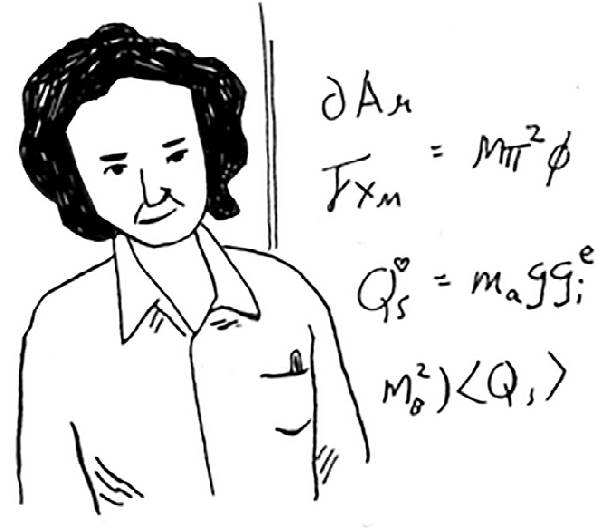 ∂Aμ
γxμ = mπ²φ
Qₛ♡ = mₐggᵢᵉ
m₈²)<Qₛ>